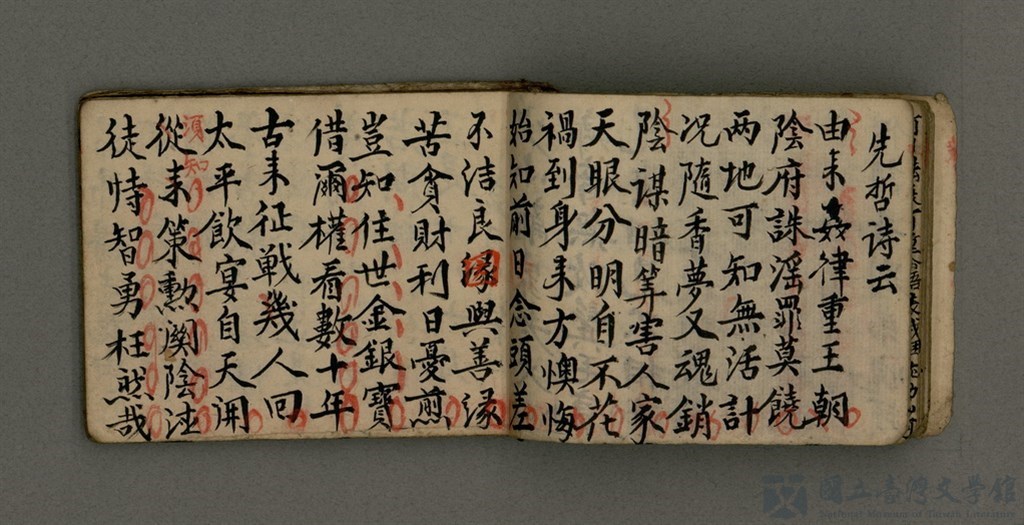 先哲诗云
由来姦律重王朝
陰府誅淫罪莫饒
两地可知無活計
况隨香夢又魂銷
陰謀暗筭害人家
天眼分明自不花
禍到身来方懊悔
始知前日念頭差
不洁良緣與善緣
苦貪財利日憂煎
豈知住世金銀寶
借爾權看數十年
古来征戰幾人回
太平飲宴自天開
須知
從来策勳闕陰
徒恃智勇枉然哉
國立臺灣文學館
National Museum of Taiwan Literature